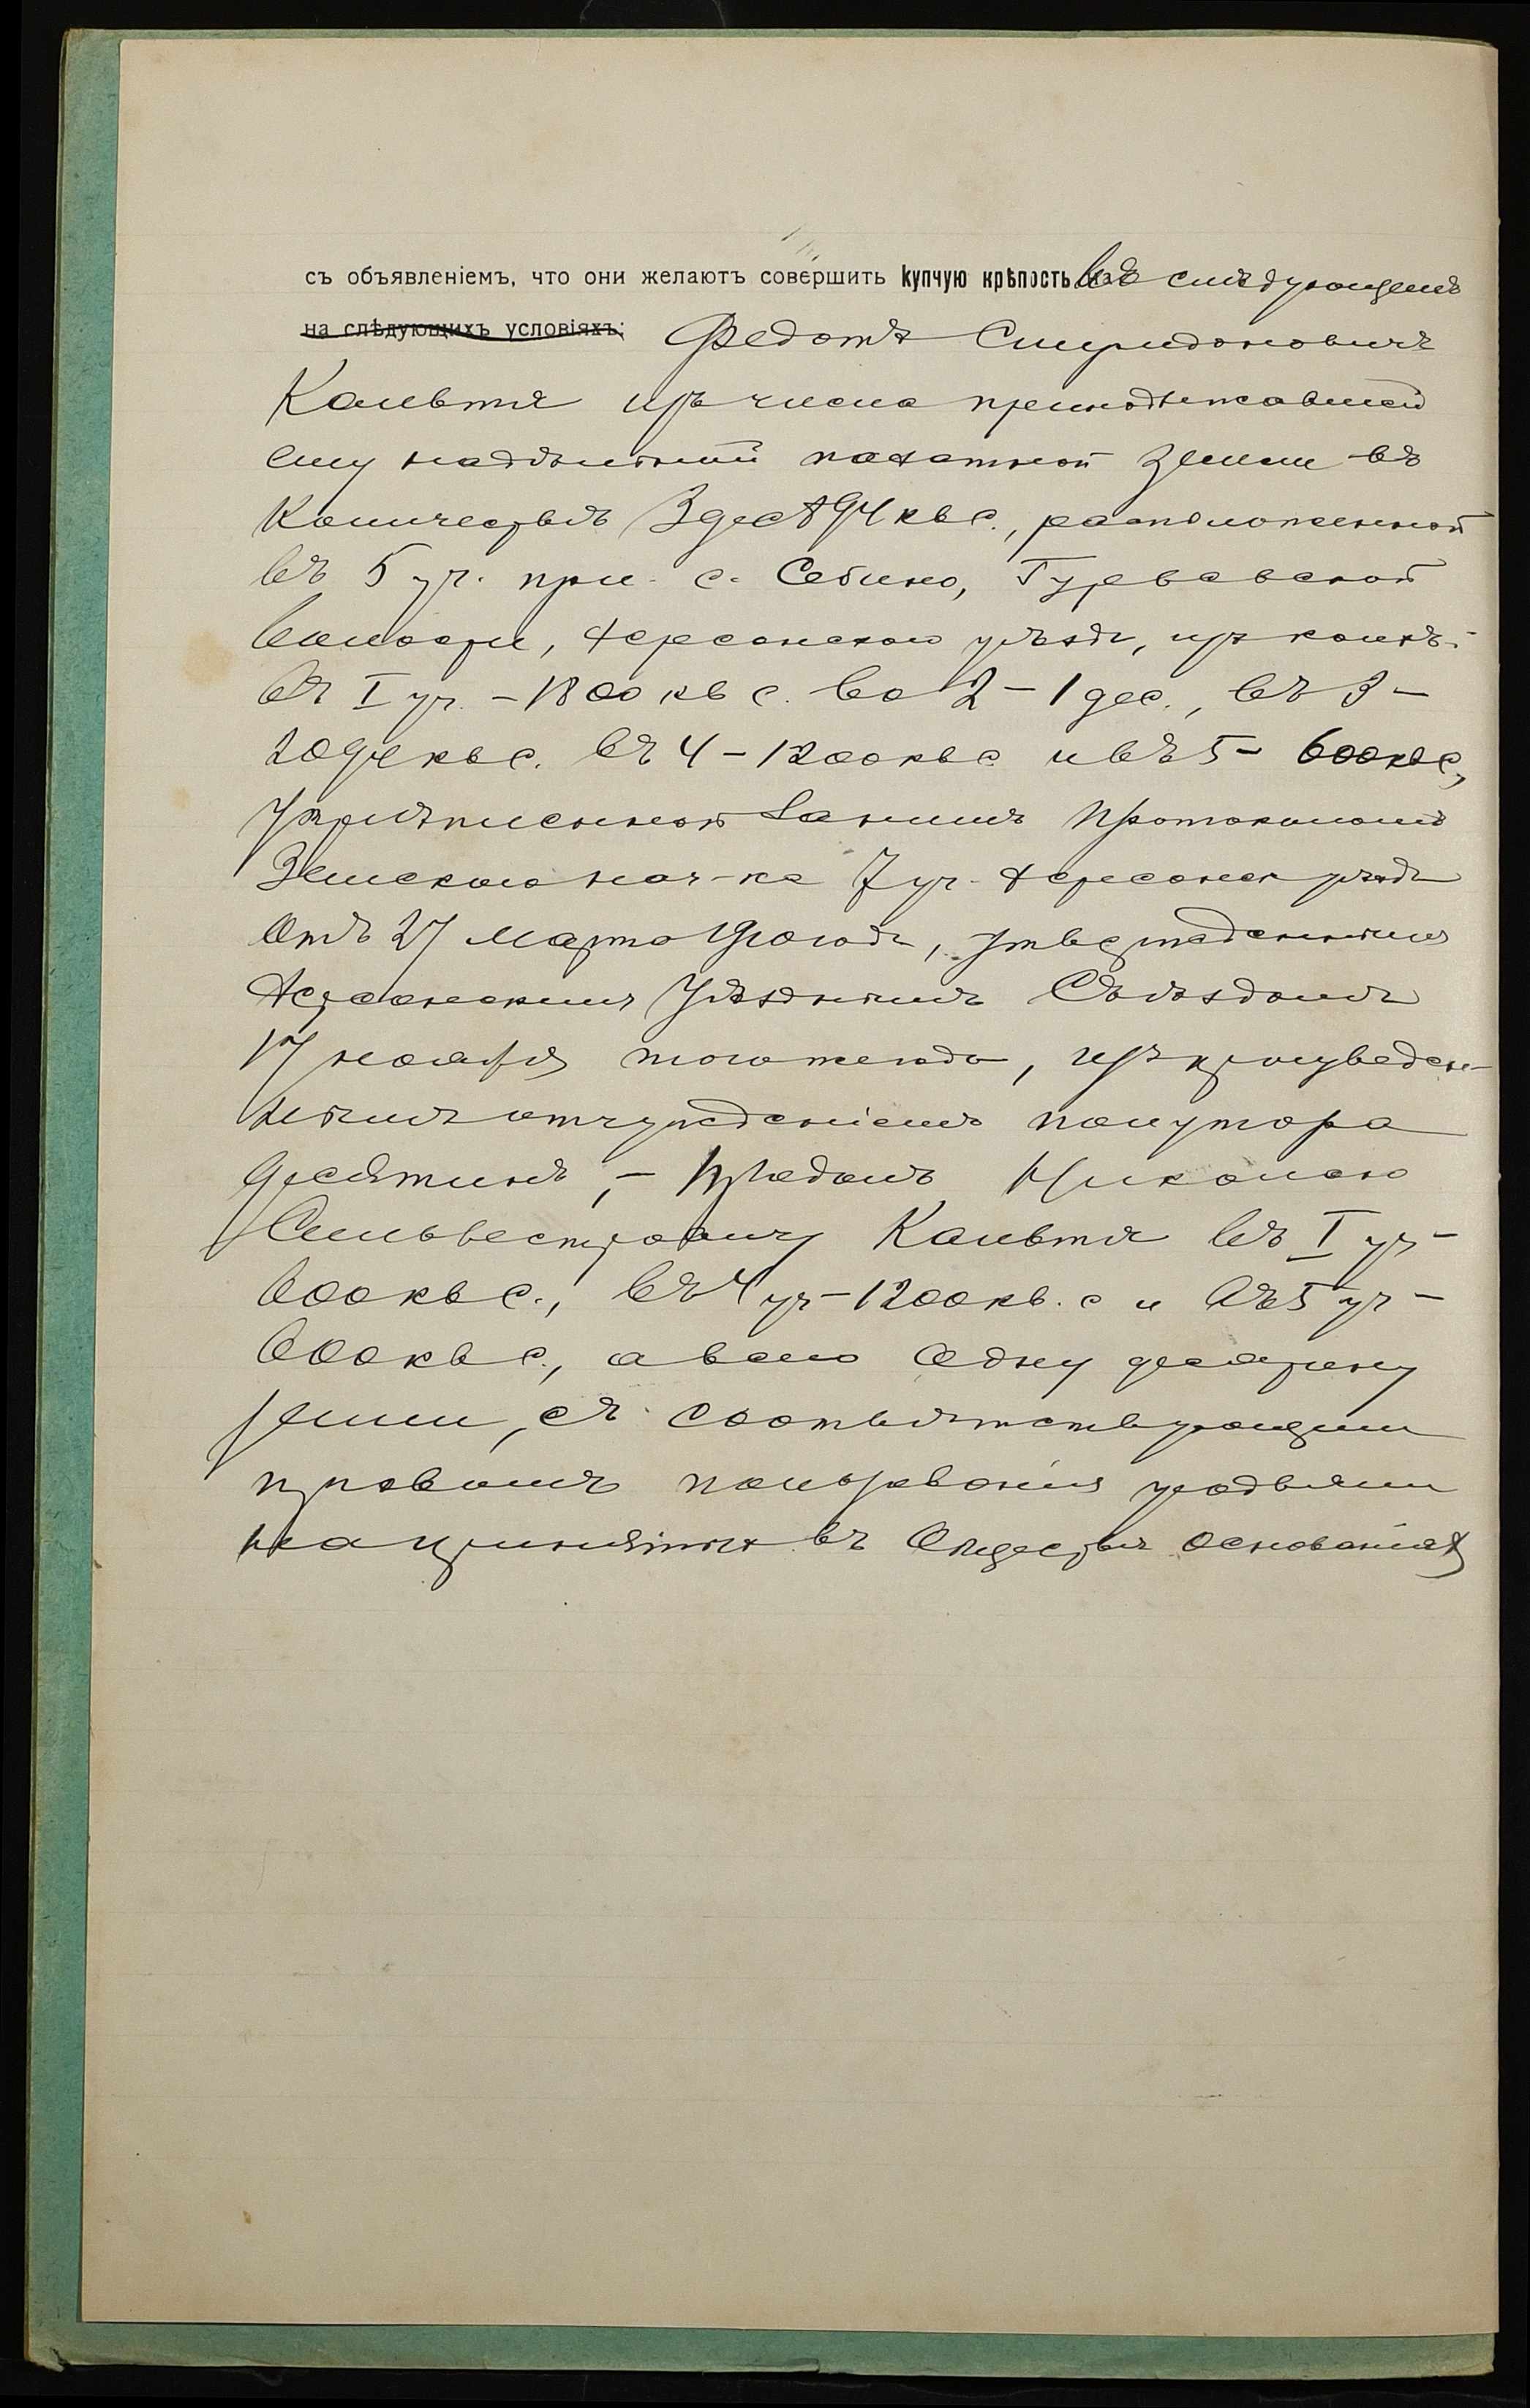 съ объявленіемъ, что они желаютъ совершить купчую крѣпость въ слѣдующемъ
на слѣдующихъ условіяхъ: Федотъ Спиридоновичъ
Кальвтя изъ числа принадлежавшей
ему надѣльной пахатной земли въ
количествѣ 3 дес 894 кв с., расположенной
въ 5 уч. при с. Себино, Гурьевской
волости, Херсонскаго уѣзда, изъ коихъ:
въ I уч. – 1800 кв с. во 2 – 1 дес., въ 3 –
2094 кв с. въ 4 – 1200 кв с и въ 5 – 600 кв с,
укрѣпленной за нимъ протоколомъ
Земскаго нач-ка 7 уч. Херсонск уѣзда
отъ 27 марта года, утвержденнымъ
Херсонскимъ Уѣзднымъ Съѣздомъ
17 ноября того же года, произведен-
нымъ отчужденіемъ полутора
десятинъ, – продалъ Николаю
Сильвестровичу Кальвтя въ I уч –
600 кв с., въ 4 уч – 1200 кв. с и въ 5 уч –
600 кв с., а всего одну десятину
земли, съ соотвѣтствующимъ
правомъ пользованія угодьями
на принятыхъ въ Обществѣ основаніяхъ